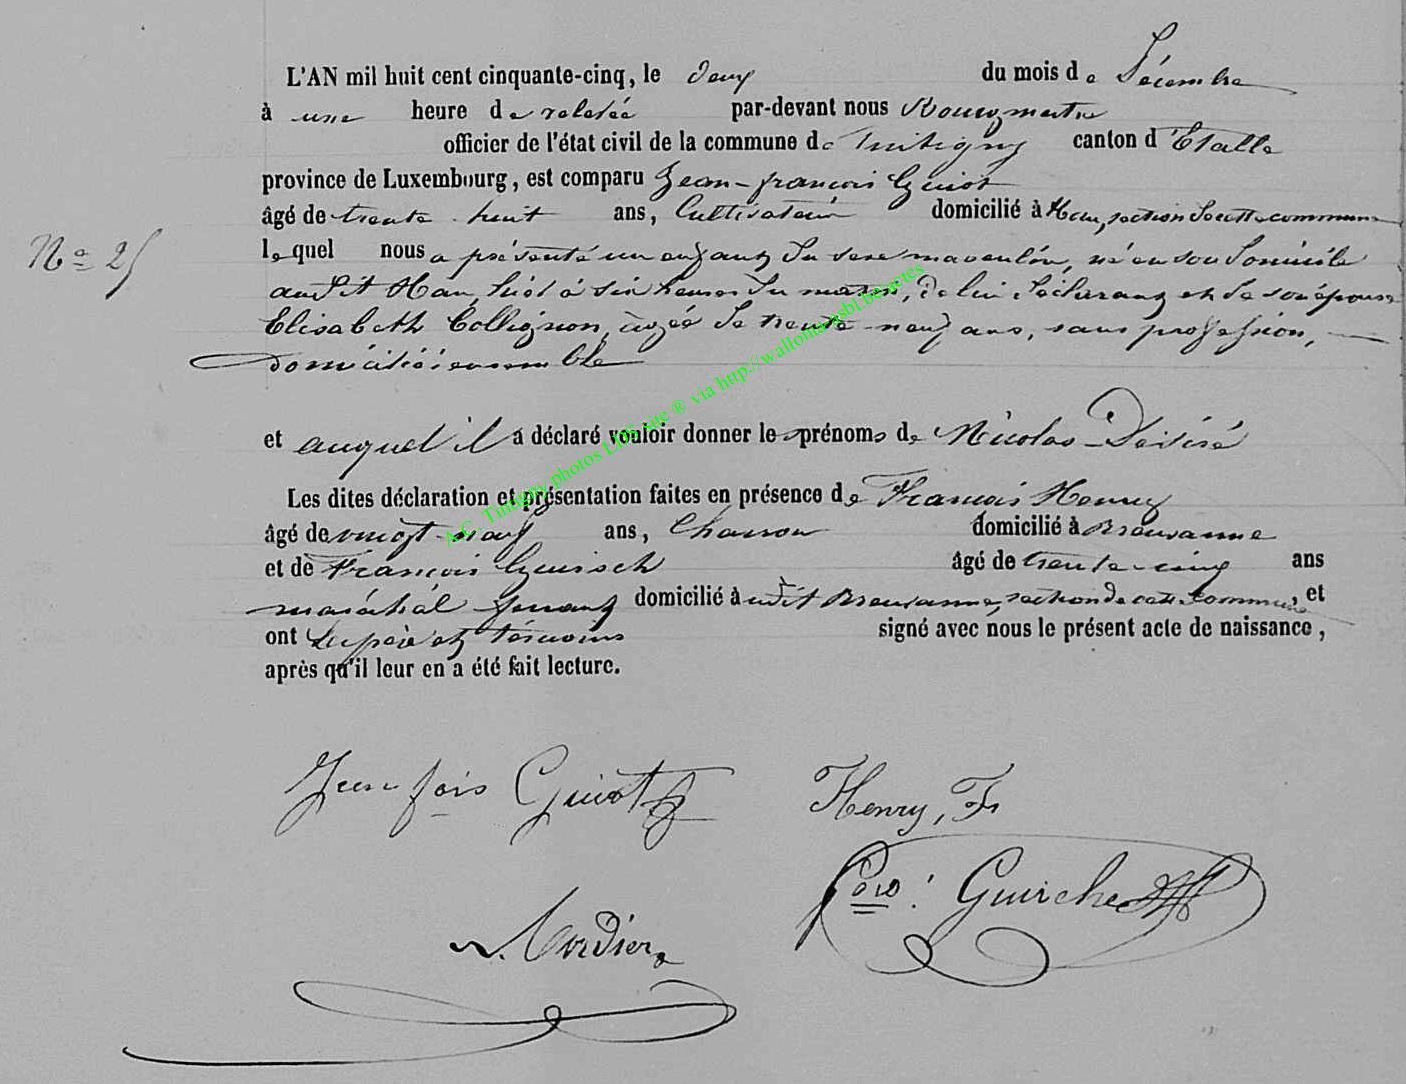 L'AN mil huit cent cinquante-cinq, le deux du mois de Décembre
à une heure de relevée par-devant nous Bourgmestre
officier de l'état civil de la commune de Tintigny canton d'Etalle
province de Luxembourg, est comparu Jean-françois Guiot
âgé de trente-huit ans, Cultivateur domicilié à Han, section de cette commune
lequel nous a présenté un enfant du sexe masculin, né en son domicile
N° 25
audit Han, hier à six heures du matin, de lui déclarant et de son épouse
Elisabeth Collignon, âgée de trente-neuf ans, sans profession,
domiciliés ensemble
et auquel il a déclaré vouloir donner les prénoms de Nicolas-Désiré
Les dites déclaration et présentation faites en présence de François Henry
âgé de vingt-neuf ans, Charron domicilié à Breuvanne
et de François Guirsch âgé de trente-cinq ans
maréchal ferrant domicilié à audit Breuvanne, section de cette commune, et
ont les père et témoins signé avec nous le présent acte de naissance,
après qu'il leur en a été fait lecture.
Jean fois Guiot Henry, F
fois: Guirche
Cordier
A.C. Tintigny photos LDS site ® via http://wallonia-asbl.be/actes